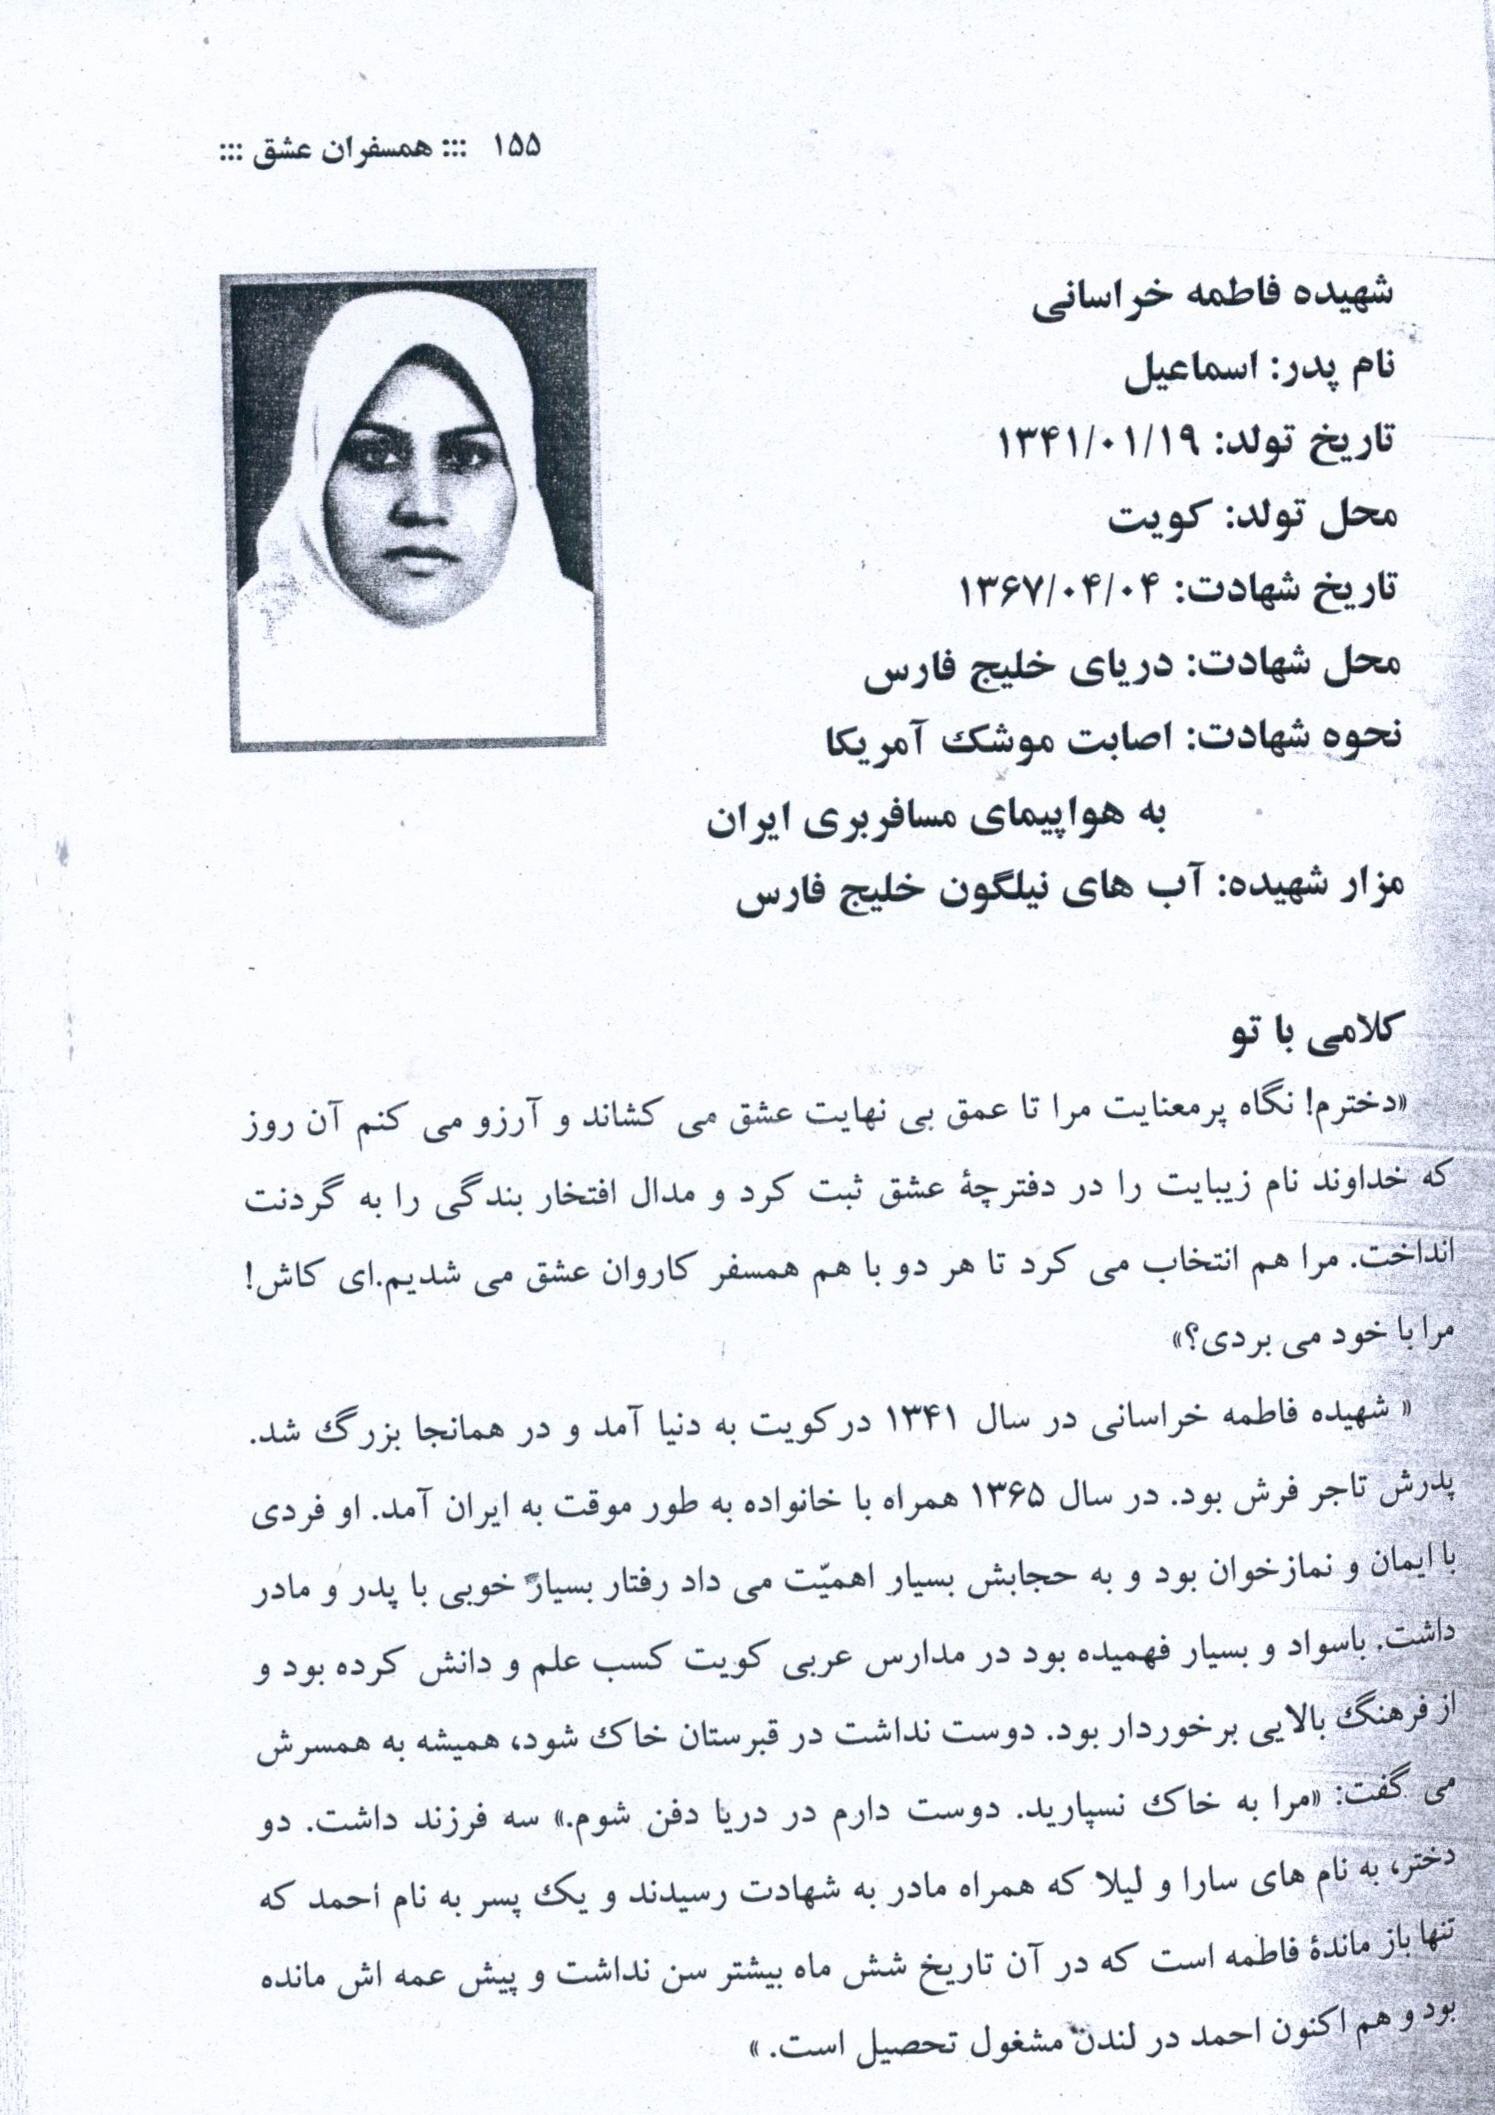 ۱۵۵ ::: همسفران عشق :::
شهیده فاطمه خراسانی
نام پدر: اسماعیل
تاریخ تولد: ۱۳۴۱/۰۱/۱۹
محل تولد: کویت
تاریخ شهادت: ۱۳۶۷/۰۴/۰۴
محل شهادت: دریای خلیج فارس
نحوه شهادت: اصابت موشک آمریکا
به هواپیمای مسافربری ایران
مزار شهیده: آب های نیلگون خلیج فارس
کلامی با تو
«دخترم! نگاه پرمعنایت مرا تا عمق بی نهایت عشق می کشاند و آرزو می کنم آن روز
که خداوند نام زیبایت را در دفترچهٔ عشق ثبت کرد و مدال افتخار بندگی را به گردنت
انداخت. مرا هم انتخاب می کرد تا هر دو با هم همسفر کاروان عشق می شدیم.ای کاش!
مرا با خود می بردی؟»
« شهیده فاطمه خراسانی در سال ۱۳۴۱ درکویت به دنیا آمد و در همانجا بزرگ شد.
پدرش تاجر فرش بود. در سال ۱۳۶۵ همراه با خانواده به طور موقت به ایران آمد. او فردی
با ایمان و نمازخوان بود و به حجابش بسیار اهمیّت می داد رفتار بسیار خوبی با پدر و مادر
داشت. باسواد و بسیار فهمیده بود در مدارس عربی کویت کسب علم و دانش کرده بود و
از فرهنگ بالایی برخوردار بود. دوست نداشت در قبرستان خاک شود، همیشه به همسرش
می گفت: «مرا به خاک نسپارید. دوست دارم در دریا دفن شوم.» سه فرزند داشت. دو
دختر، به نام های سارا و لیلا که همراه مادر به شهادت رسیدند و یک پسر به نام احمد که
تنها باز ماندهٔ فاطمه است که در آن تاریخ شش ماه بیشتر سن نداشت و پیش عمه اش مانده
بود و هم اکنون احمد در لندن مشغول تحصیل است. »